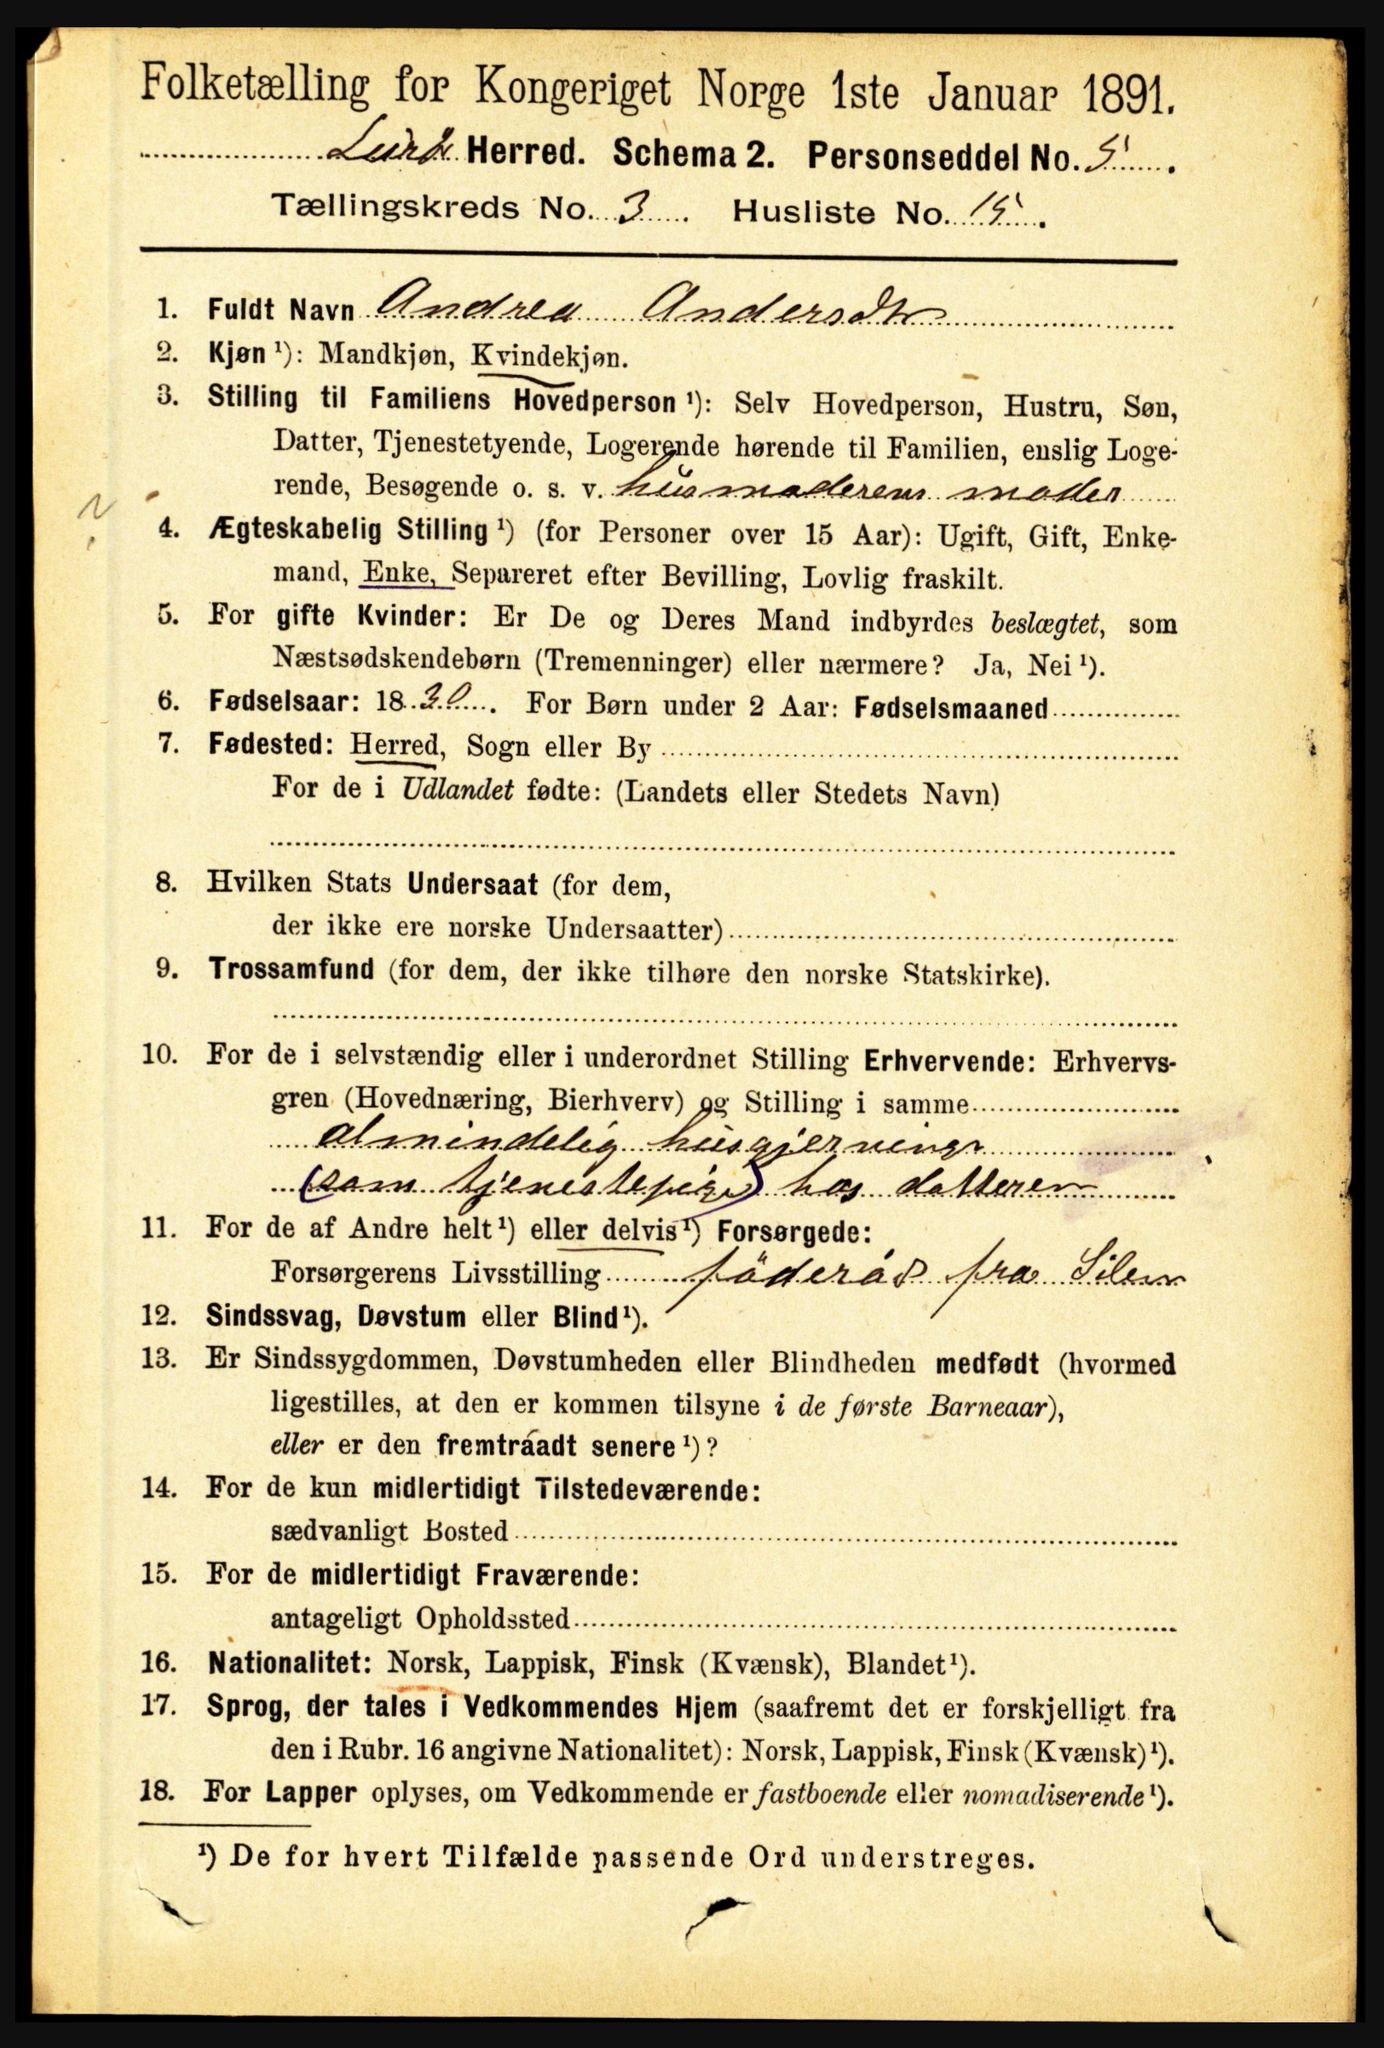 Folketælling for Kongeriget Norge 1ste Januar 1891.
Lurö Herred. Schema 2. Personseddel No. 5.
Tællingskreds No. 3. Husliste No. 15.
1. Fuldt Navn Andrea Andersdtr
2. Kjøn ¹): Mandkjøn, Kvindekjøn.
3. Stilling til Familiens Hovedperson ¹): Selv Hovedperson, Hustru, Søn,
Datter, Tjenestetyende, Logerende hørende til Familien, enslig Loge-
rende, Besøgende o. s. v. husmoderens moder
?
4. Ægteskabelig Stilling ¹) (for Personer over 15 Aar): Ugift, Gift, Enke-
mand, Enke, Separeret efter Bevilling, Lovlig fraskilt.
5. For gifte Kvinder: Er De og Deres Mand indbyrdes beslægtet, som
Næstsødskendebørn (Tremenninger) eller nærmere? Ja, Nei ¹).
6. Fødselsaar: 1830. For Børn under 2 Aar: Fødselsmaaned
7. Fødested: Herred, Sogn eller By
For de i Udlandet fødte: (Landets eller Stedets Navn)
8. Hvilken Stats Undersaat (for dem,
der ikke ere norske Undersaatter)
9. Trossamfund (for dem, der ikke tilhøre den norske Statskirke).
10. For de i selvstændig eller i underordnet Stilling Erhvervende: Erhvervs-
gren (Hovednæring, Bierhverv) og Stilling i samme
almindelig husgjerning
(som tjenestepige) hos datteren
11. For de af Andre helt ¹) eller delvis ¹) Forsørgede:
Forsørgerens Livsstilling föderåd fra Silen
12. Sindssvag, Døvstum eller Blind ¹).
13. Er Sindssygdommen, Døvstumheden eller Blindheden medfødt (hvormed
ligestilles, at den er kommen tilsyne i de første Barneaar),
eller er den fremtraadt senere ¹)?
14. For de kun midlertidigt Tilstedeværende:
sædvanligt Bosted
15. For de midlertidigt Fraværende:
antageligt Opholdssted
16. Nationalitet: Norsk, Lappisk, Finsk (Kvænsk), Blandet ¹).
17. Sprog, der tales i Vedkommendes Hjem (saafremt det er forskjelligt fra
den i Rubr. 16 angivne Nationalitet): Norsk, Lappisk, Finsk (Kvænsk) ¹).
18. For Lapper oplyses, om Vedkommende er fastboende eller nomadiserende ¹).
¹) De for hvert Tilfælde passende Ord understreges.